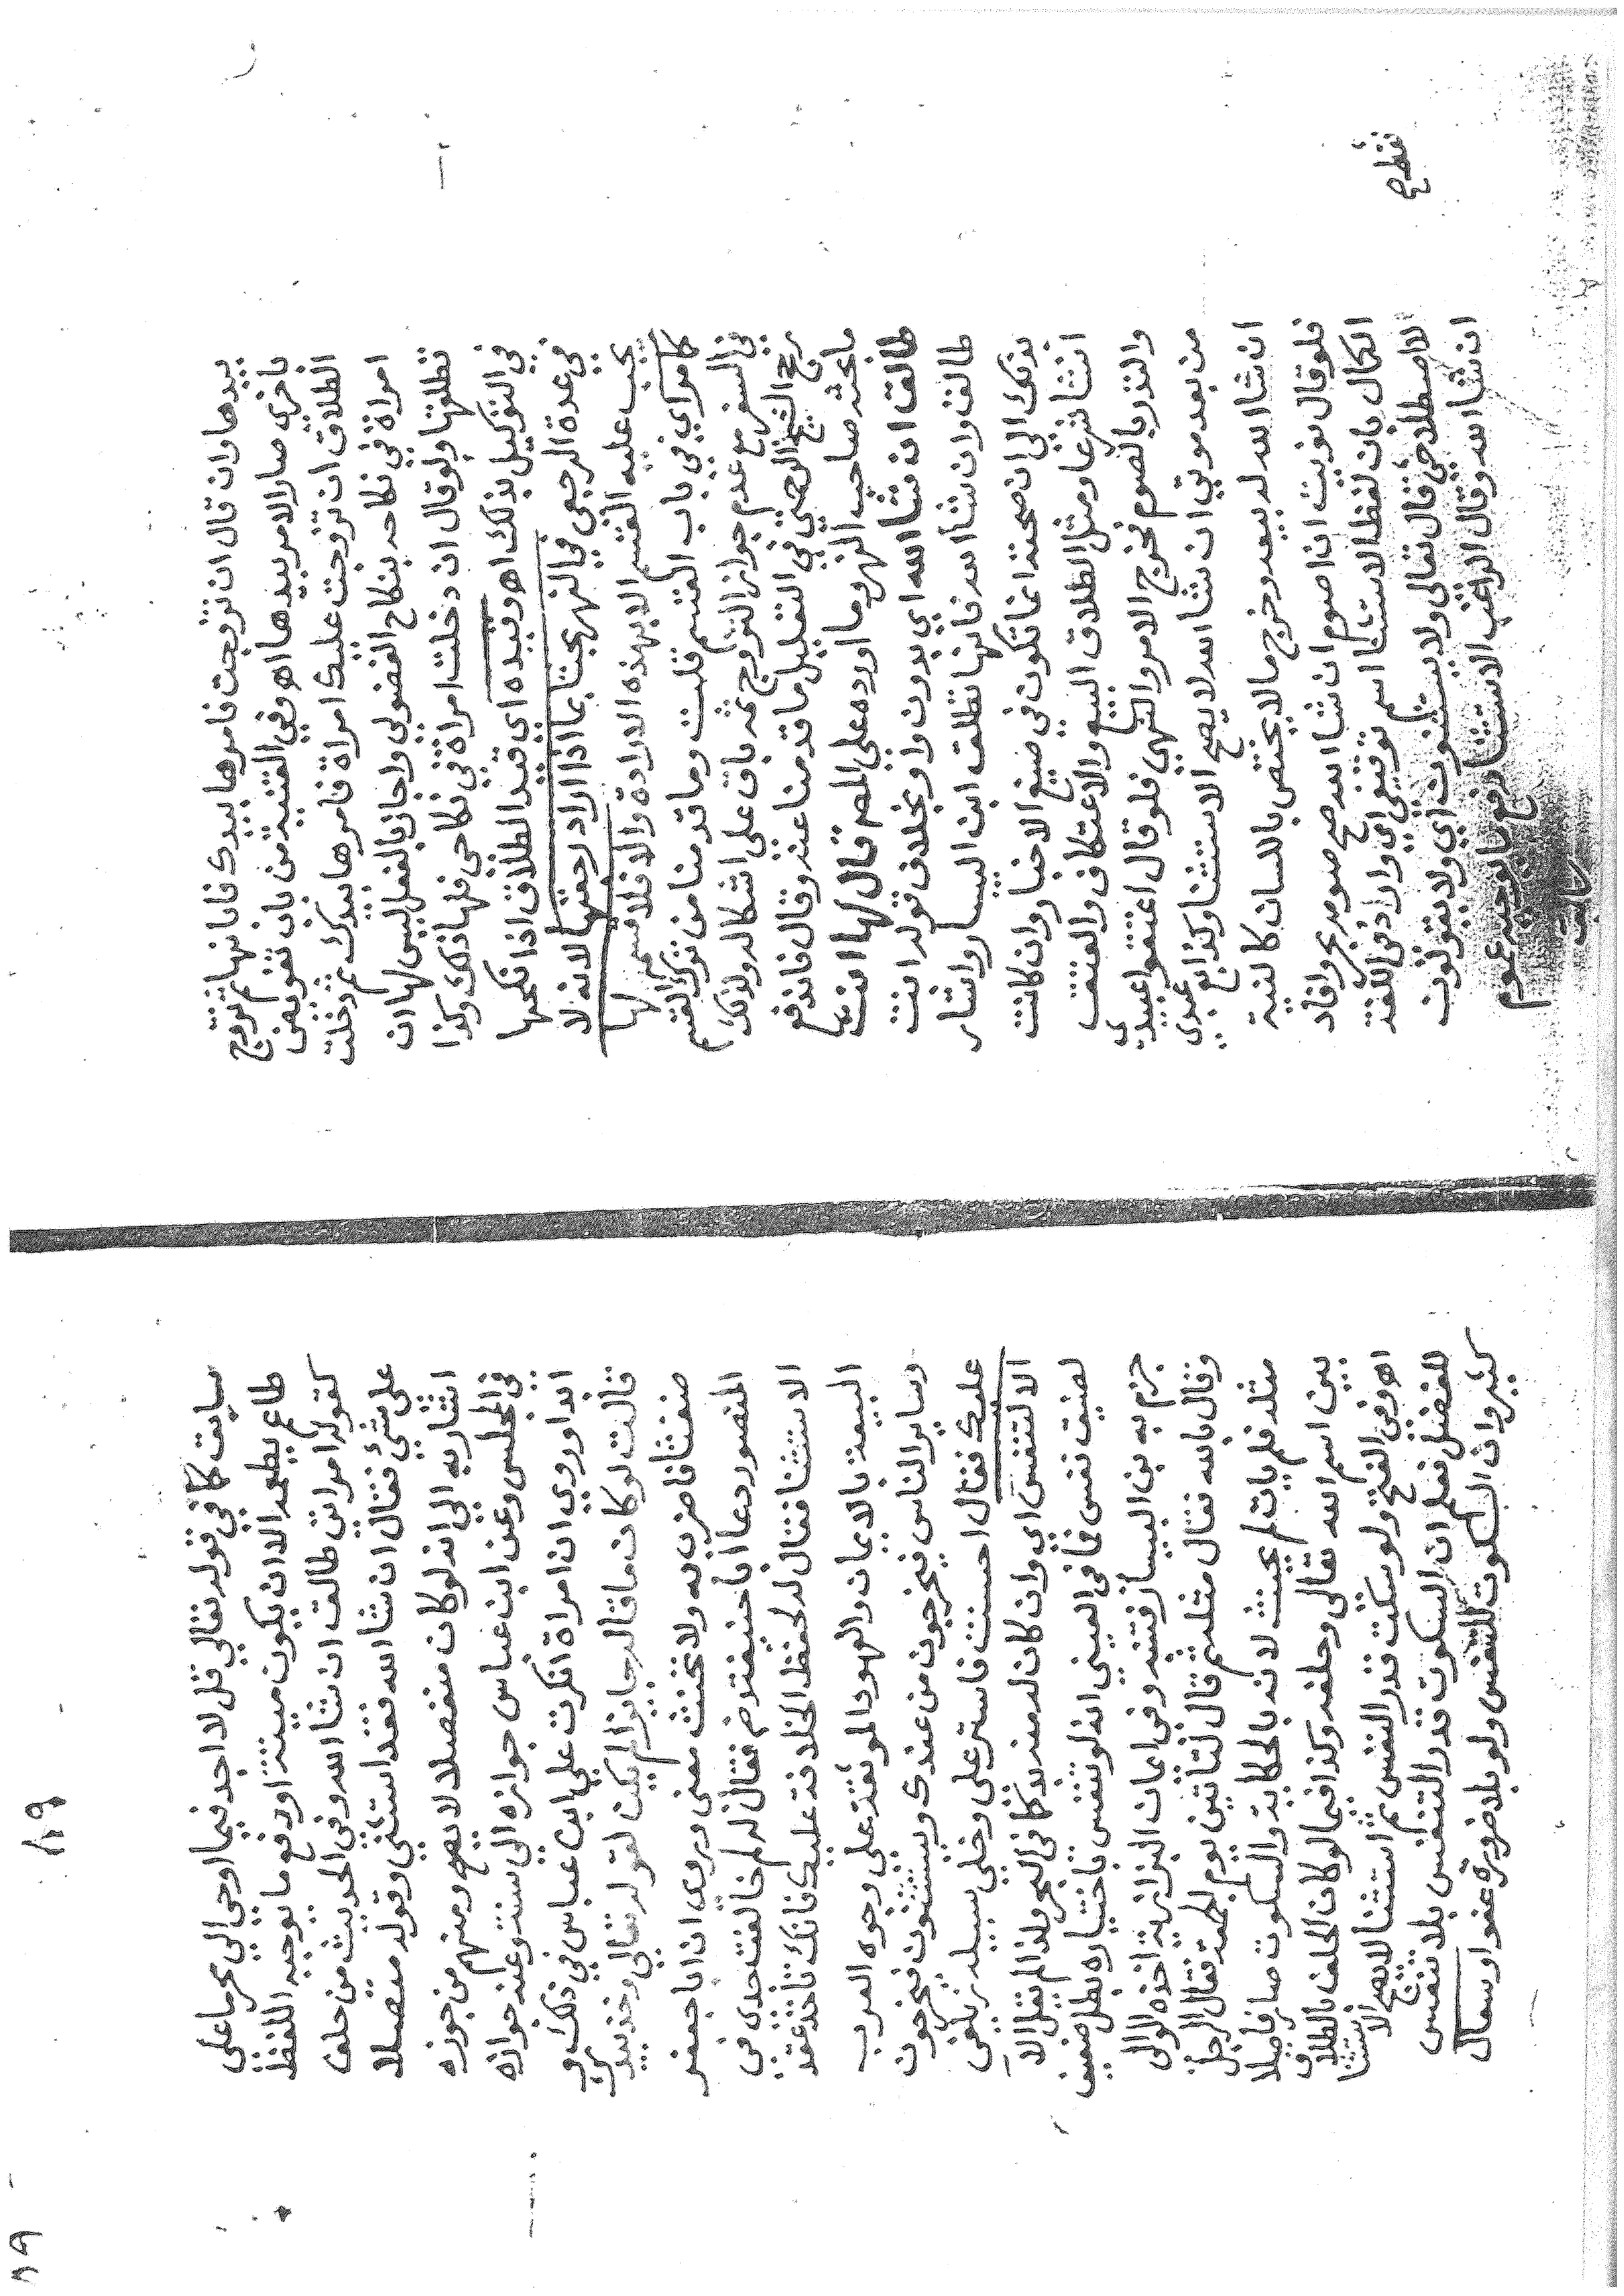 بيدها وان قال ان تزوجت فامرها بيدك فانها تم تزوج
باخرى صار الامر بيدها اه وفي القنية من باب تفويض
الطلاق ان تزوجت عليك امراة فامرها بيدك ثم دخلت
امراة في نكاحه بنكاح الفضولي واجاز بالفعل ليس لها ان
تطلقها ولو قال ان دخلت امراة في نكاحي فلها ذلك وكذا
في التوكيل بذلك اه وقيده اي قيد الطلاق اذا نكحها
في عدة الرجعي في النهر بحثا بما اذا اراد رجعتها لانه لا
يجب عليه القسم الا بهذه الارادة والا فلا قسم لها
كما مر اي في باب القسم قلت وما قدمنا من ترك القسم
في السفر مع عدم جواز التزوج ثمه باق على اشكاله ولذلك
رجح الشيخ الرحمتي في التعليل ما قدمنا عنه وقال فاندفع
ما بحثه صاحب النهر وما اورده على المص قال لها انت
طالق ان شا الله اي بدون واو بخلاف قوله انت
طالق وان شا الله فانها تطلق ابن البسا واشار
بذلك الى ان صحته انما تكون في صيغ الاخبار وان كانت
انشا شرعا ومثل الطلاق البيع والاعتكاف والعتق
والنذر بالصوم فخرج الامر والنهي فلو قال اعتقوا عبيدي
من بعد موتي ان شا الله لا يصح الاستثنا وكذا بع عبدي
ان شا الله له بيعه وخرج ما لا يختص باللسان كالنية
فلو قال نويت ان اصوم ان شا الله صح صومه بحر وافاد
الكمال بان لفظ الاستثنا اسم توقيفي اي وارد في اللغة
للاصطلاحي قال تعالى ولا يستثنون اي ولا يقولون
ان شا الله وقال الراغب الاستثنا رفع ما يوجبه عموم
سابق
فقط ح
٨٩
سابق كما في قوله تعالى قل لا اجد فيما اوحي الي محرما على
طاعم يطعمه الا ان يكون ميتة او رفع ما يوجبه اللفظ
كقوله امراتي طالق ان شا الله وفي الحديث من حلف
على شئ فقال ان شا الله فقد استثنى وقوله متصلا
اشار به الى انه لو كان منفصلا لا يصح ومنهم من جوزه
في المجلس وعن ابن عباس جوازه الى سنة وعنه جوازه
ابدا وروي ان امراة انكرت على ابن عباس في ذلك و
قالت لو كان ما قال جايزا لم يكن لقوله تعالى وخذ بيدك
ضغثا فاضرب به ولا تحنث معنى ويروى ان ابا جعفر
المنصور دعا ابا حنيفة رضه فقال له لم خالفت جدي في
الاستثنا فقال له لحفظ الخلافة عليك فانك تاخذ عقد
البيعة بالايمان والعهود الموثقة على وجوه العرب
وساير الناس فيخرجون من عندك ويستثنون فيخرجون
عليك فقال احسنت فاستر علي وخلي سبيله زيلعي
الا لتنفس اي وان كان له منه بد كما في البحر ولذا لم يقل الا
لضيق نفس فما في العيني انه لو تنفس باختياره بطل ضعيف
جزم به بن البسا فتنبه وفي ايمان البزازية اخذه الوالي
وقال بالله فقال مثله ثم قال لتاتين يوم الجمعة فقال الرجل
مثله فلم يات لم يحنث لانه بالحكاية والسكوت صار فاصلا
بين اسم الله تعالى وحلفه وكذا فيما لو كان الحلف بالطلاق
اه وفي الفتح ولو سكت قدر النفس ثم استثنا لا يصح الاستثنا
للفصل فعلم ان السكوت قدر التنفس بلا تنفس
كثير وان السكوت للتنفس ولو بلا ضرورة عفو او سعال